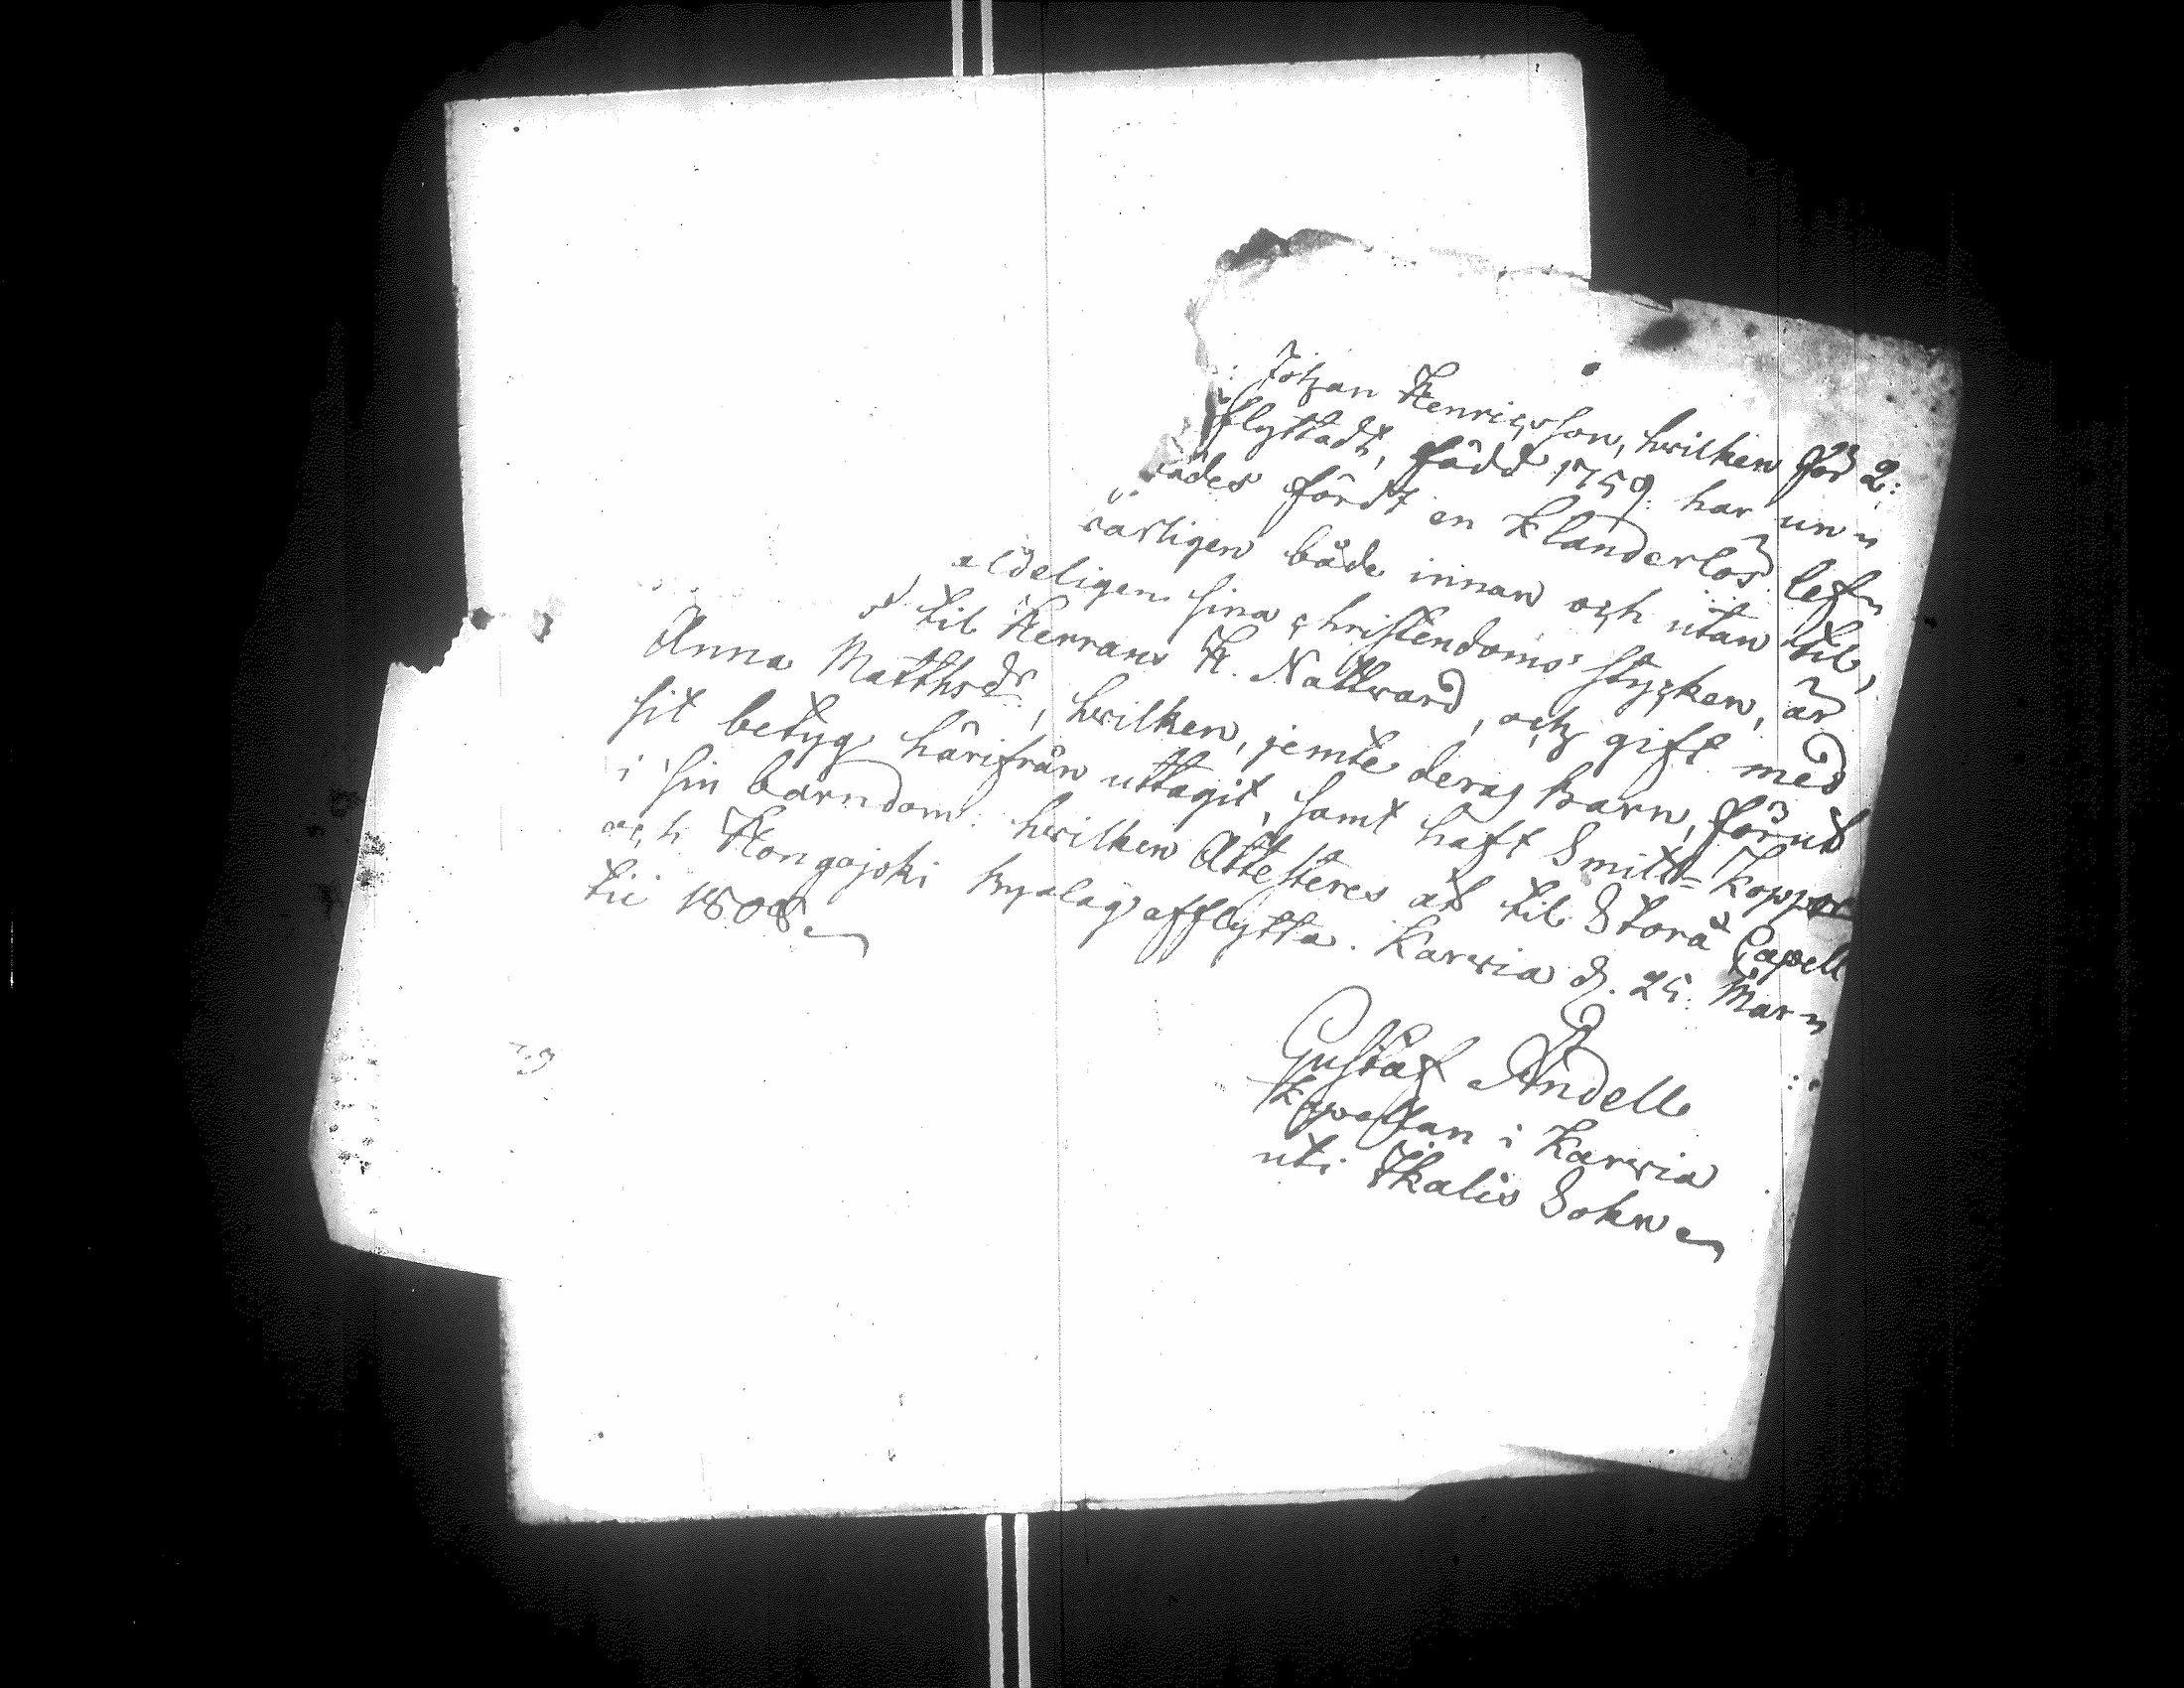 Johan Henricsson, hvilken för 2:
flyttadt, född 1759. har un=
fördt en klanderlös lef=
både innan och utan til,
sina christendoms stycken, är
til Herrans H. Nattward, och gift med
Anna Matthsdr, hvilken, jemte deras barn, förut
sit betyg härifrån uttagit, samt haft Smitt=Koppor
i sin barndom. hvilken Attesteres at til Storå Capell
och Kongajoki byalag afflytta. Karvia d. 25. Mar=
tii 1808.
Gustaf Andell
Kapellan i Karvia
uti Ikalis Sokn